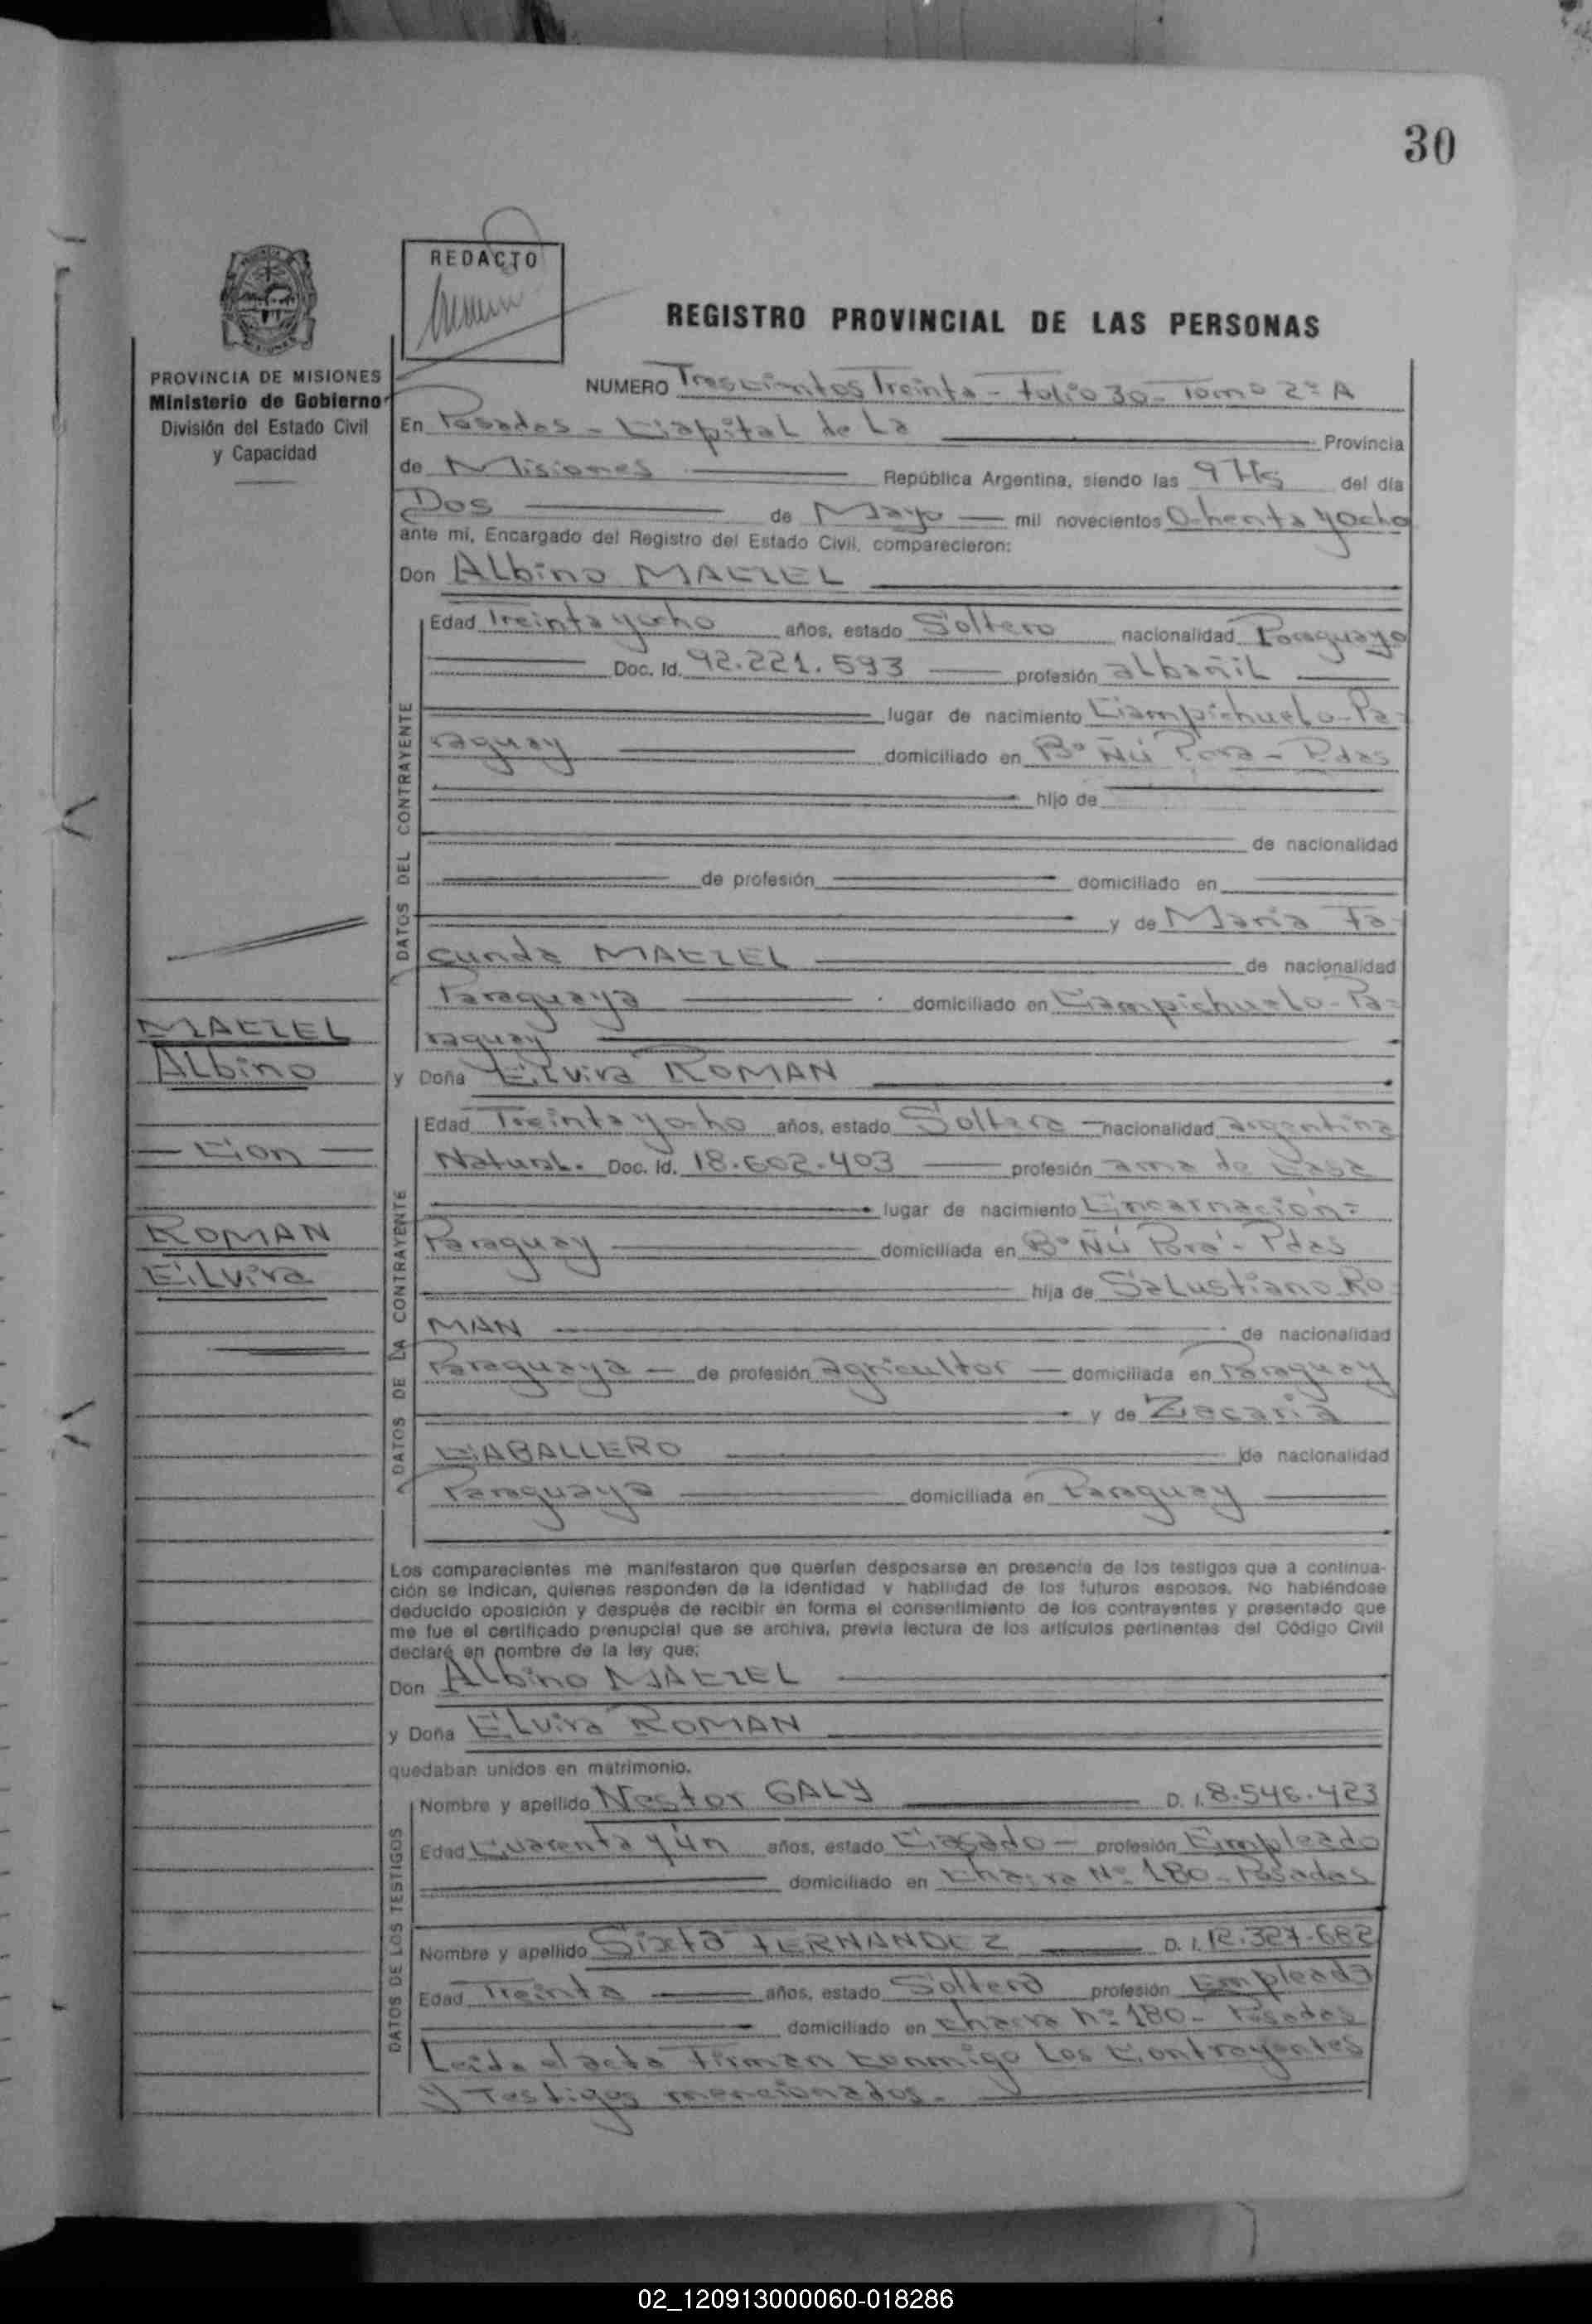 30
REDACTO
REGISTRO PROVINCIAL DE LAS PERSONAS
PROVINCIA DE MISIONES
Ministerio de Gobierno
División del Estado Civil
y Capacidad
NUMERO Trescientos Treinta - Folio 30 - Tomo 2º A
En Posadas - Capital de La Provincia
de Misiones República Argentina, siendo las 9 Hs del día
Dos de Mayo mil novecientos Ochenta y ocho
ante mí, Encargado del Registro del Estado Civil, comparecieron:
Don Albino MAEZEL
DATOS DEL CONTRAYENTE
Edad Treinta y ocho años, estado Soltero nacionalidad Paraguayo
Doc. Id. 92.221.593 profesión albañil
lugar de nacimiento Campichuelo - Pa-
raguay domiciliado en Bº Ñú Porá - Pdas
hijo de
de nacionalidad
de profesión domiciliado en
y de María Fa-
cunda MAEZEL de nacionalidad
Paraguaya domiciliado en Campichuelo - Pa=
raguay
MAEZEL
Albino
- Con -
ROMAN
Elvira
y Doña Elvira ROMAN
DATOS DE LA CONTRAYENTE
Edad Treinta y ocho años, estado Soltera nacionalidad argentina
Natural. Doc. Id. 18.602.403 profesión ama de casa
lugar de nacimiento Encarnación=
Paraguay domiciliada en Bº Ñú Porá - Pdas
hija de Salustiano RO-
MAN de nacionalidad
Paraguaya de profesión agricultor domiciliada en Paraguay
y de Zacaria
CABALLERO de nacionalidad
Paraguaya domiciliada en Paraguay
Los comparecientes me manifestaron que querían desposarse en presencia de los testigos que a continua-
ción se indican, quienes responden de la identidad y habilidad de los futuros esposos. No habiéndose
deducido oposición y después de recibir en forma el consentimiento de los contrayentes y presentado que
me fue el certificado prenupcial que se archiva, previa lectura de los artículos pertinentes del Código Civil
declaré en nombre de la ley que:
Don Albino MAEZEL
y Doña Elvira ROMAN
quedaban unidos en matrimonio.
DATOS DE LOS TESTIGOS
Nombre y apellido Nestor GALY D. I. 8.546.423
Edad Cuarenta y ún años, estado Casado - profesión Empleado
domiciliado en Chacra Nº 180 - Posadas
Nombre y apellido Sixta FERNANDEZ D. I. 12.327.682
Edad Treinta años, estado Soltera profesión Empleada
domiciliado en Chacra nº 180 - Posadas
Leida el acta Firman conmigo Los Contrayentes
y Testigos mencionados.-
02_120913000060-018286